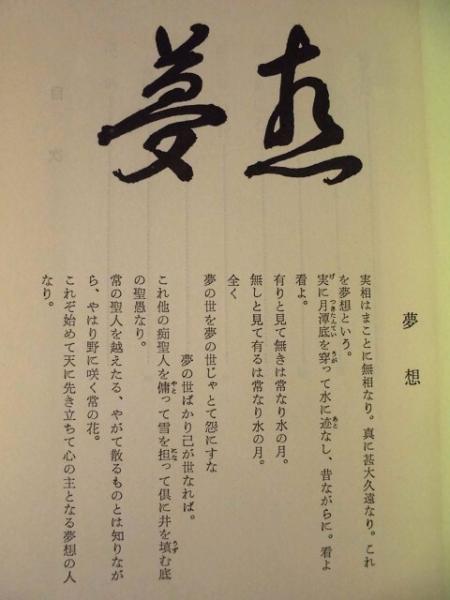 夢想
夢想
実相はまことに無相なり。真に甚大久遠なり。これ
を夢想という。
げ つきたんてい うが あと
実に月潭底を穿って水に迹なし、昔ながらに。看よ
看よ。
有りと見て無きは常なり水の月。
無しと見て有るは常なり水の月。
全く
夢の世を夢の世じゃとて怨にすな
夢の世ばかり己が世なれば。
やと にな うず
これ他の痴聖人を傭って雪を担って倶に井を填む底
の聖愚なり。
常の聖人を越えたる、やがて散るものとは知りなが
ら、やはり野に咲く常の花。
これぞ始めて天に先き立ちて心の主となる夢想の人
なり。
目次